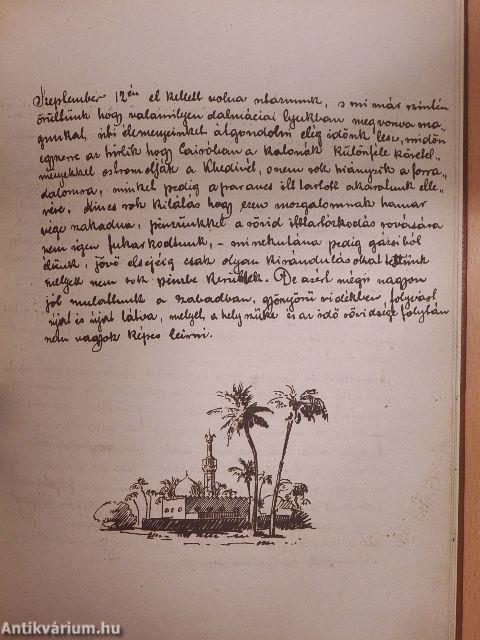 September 12én el kellett volna utaznunk, s mi már szintén
örültünk hogy valamilyen dalmáciai lyukban megvonva ma-
gunkat, úti élményeinket átgondolni elég időnk lesz, midőn
egyszerre az hírlik hogy Cairóban a katonák különféle követel-
ményekkel ostromolják a Khedivét, s nem sok hiányzik a forra-
dalomra, minket pedig a parancs itt tartott akaratunk elle-
nére. Nincs sok kilátás hogy ezen mozgalomnak hamar
vége szakadna, pénzünkkel a rövid itt tartózkodás rovására
nem igen fukarkodtunk, - minekutána pedig gázsiból
élünk, jövő elsejéig csak olyan kirándulásokat tettünk
melyek nem sok pénzbe kerültek. De azért mégis nagyon
jól mulattunk a szabadban, gyönyörű vidékben folyvást
újat és újat látva, melyet, a hely szűke és az idő rövidsége folytán
nem vagyok képes leírni.
Antikvárium.hu